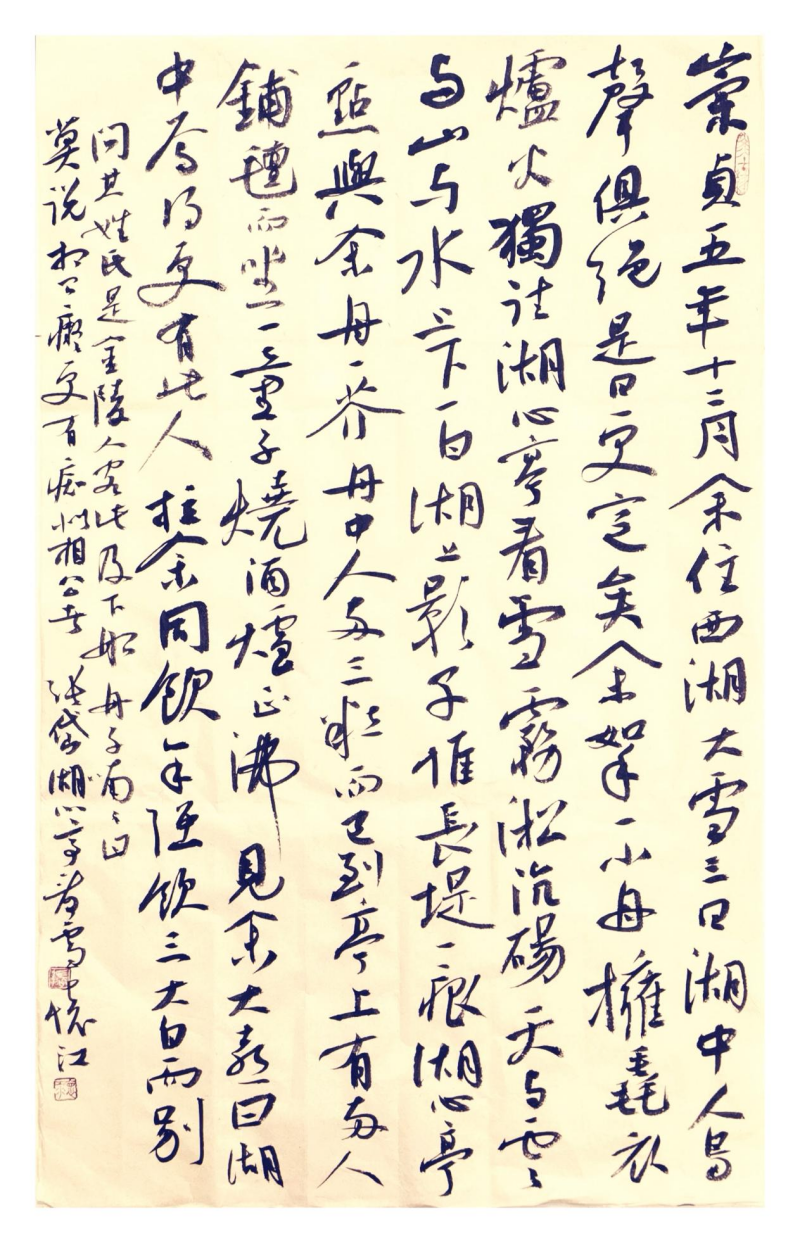 崇貞五年十二月余住西湖大雪三日湖中人鳥
聲俱绝是日更定矣余拏一小舟擁毳衣
爐火獨往湖心亭看雪霧淞沆碭天与雲〻
与山与水上下一白湖上影子惟長堤一痕湖心亭
一點與余舟一芥舟中人兩三粒而已到亭上有兩人
鋪氈而坐一童子燒酒爐正沸見余大喜曰湖
中焉得更有此人拉余同飲余强飲三大白而别
问其姓氏是金陵人客此及下船舟子喃〻曰
莫说相公癡更有痴似相公者 张岱湖心亭看雪 懷江